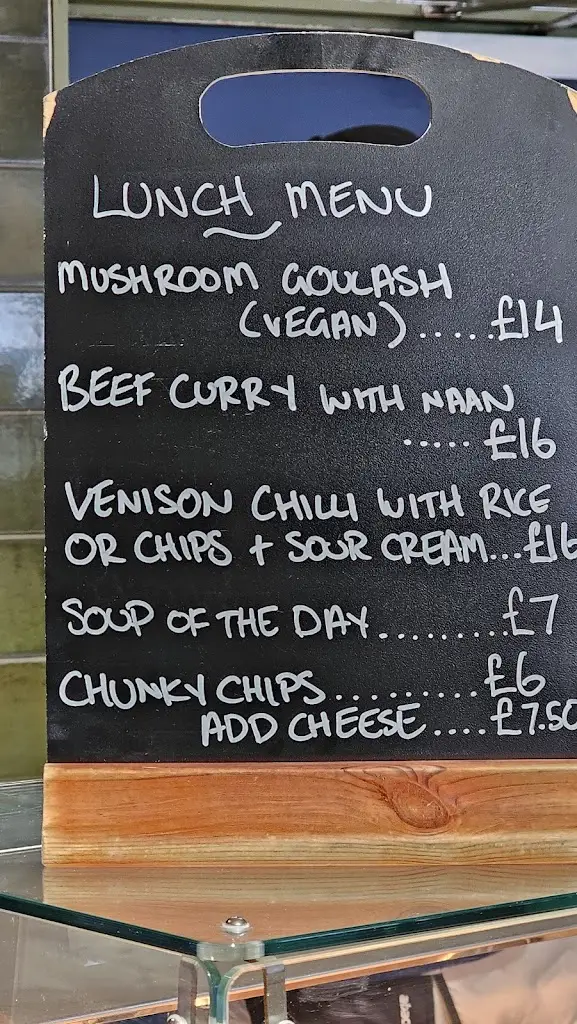 LUNCH MENU
MUSHROOM GOULASH
(VEGAN).....£14
BEEF CURRY WITH NAAN
..... £16
VENISON CHILLI WITH RICE
OR CHIPS + SOUR CREAM...£16
SOUP OF THE DAY.........£7
CHUNKY CHIPS..........£6
ADD CHEESE....£7.50